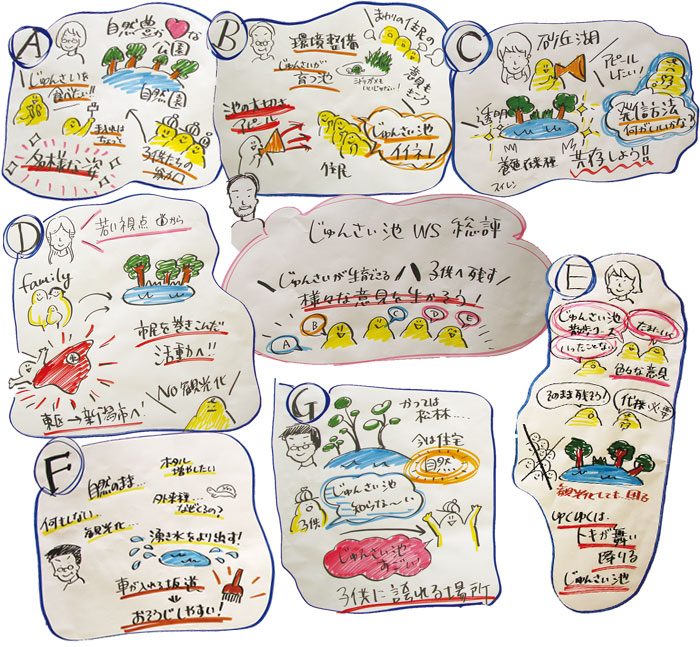 A
自然豊かな
公園
じゅんさいを
食べたい!!
自然園
多様な姿
子供たちの
B
環境整備
じゅんさいが
育つ池
まわりの住民の
意見も
きこう
池の大切さ
アピール
じゅんさい池
イイネ!
住民
C
砂丘湖
アピール
したい!
透明
発信方法
何がいいかな
共存しよう!!
スイレン
D
若い視点から
family
市民を巻きこんだ
活動へ!!
東区→新潟市へ!
NO 観光化
じゅんさい池 WS 総評
じゅんさいが生育できる
子供へ残す
様々な意見を生かそう!
A
B
C
D
E
E
じゅんさい池
散歩コース
いったことない
色々な意見
そのまま残そう!
観光化しても困る
ゆくゆくは
トキが舞い
降りる
じゅんさい池
F
自然のまま…
ホタル
増やしたい
何もしない…
外来種…
なぜだろう?
観光化…
湧き水をより出す!
車が入れる坂道
おそうじしやすい!
G
かつては
松林....
今は住宅
自然
じゅんさい池
知らな〜い
子供
じゅんさい池
すごい!
子供に誇れる場所